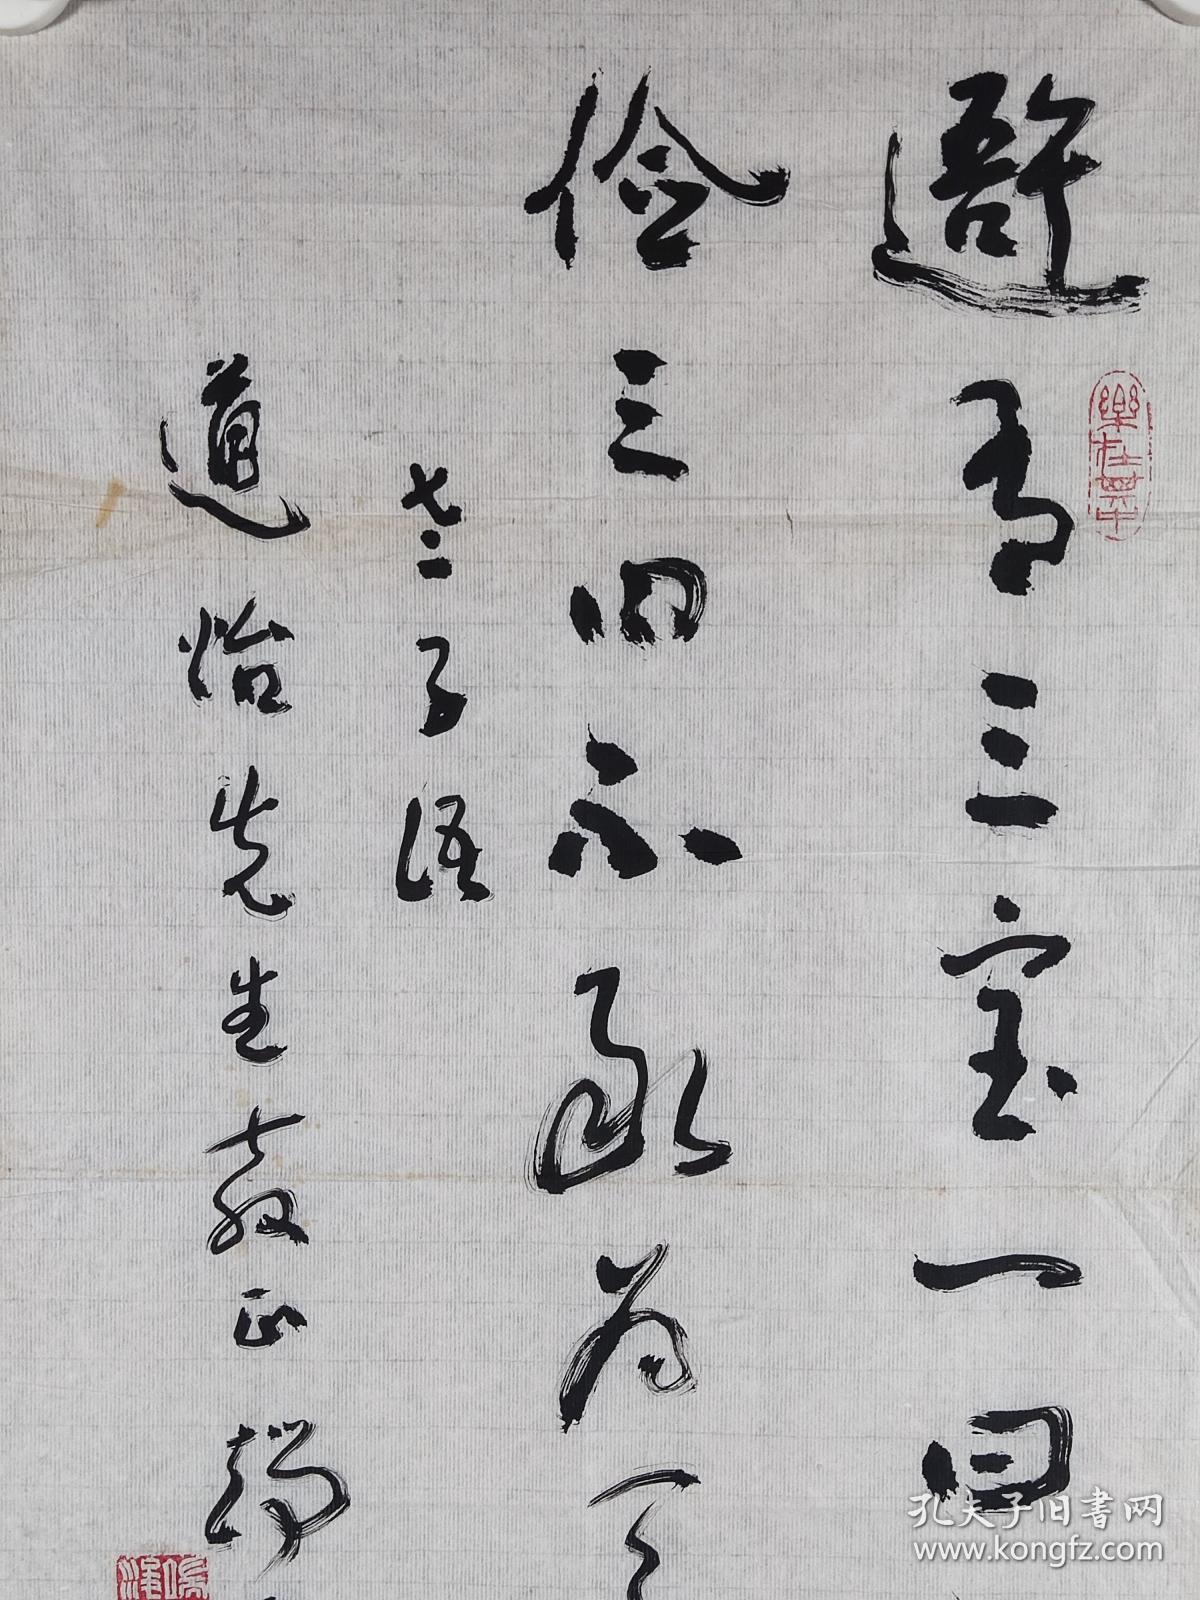 有三宝一曰
俭三曰不敢为天
老子语
道怡先生教正
樂在其中
孔夫子旧书网
www.kongfz.com